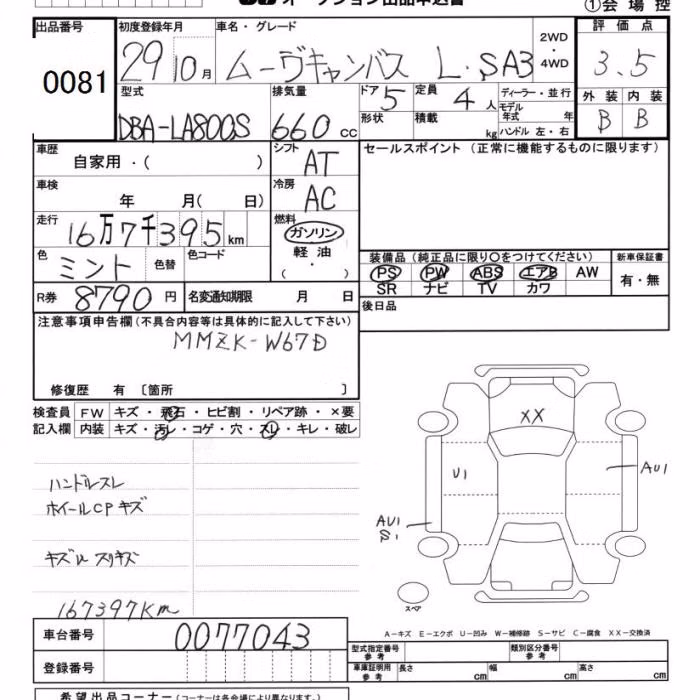 オークション出品申込書
①会場控
出品番号
0081
初度登録年月
29 10月
車名・グレード
ムーヴキャンバス L・SA3
2WD・4WD
評価点
3.5
外装 内装
B B
型式
DBA-LA800S
排気量
660 cc
ドア 5
形状
定員 4人
積載 kg
ディーラー・並行
モデル年式 年
ハンドル 左・右
車歴
自家用・( )
シフト AT
セールスポイント (正常に機能するものに限ります)
車検
年 月(日)
冷房 AC
走行
16万7千395 km
燃料
ガソリン
軽油
( ・ )
色
ミント
色替
色コード
装備品 (純正品に限り○をつけてください)
新車保証書
PS PW ABS エアB AW
SR ナビ TV カワ
有・無
R券 8790円
名変通知期限 月 日
後日品
注意事項申告欄 (不具合内容等は具体的に記入して下さい)
MMZK-W67D
修復歴 有 〔箇所 〕
検査員記入欄
FW キズ・飛石・ヒビ割・リペア跡・×要
内装 キズ・汚レ・コゲ・穴・スレ・キレ・破レ
ハンドルスレ
ホイールCPキズ
キズU スリキズ
167397Km
XX
U1
AU1
AU1
S1
スペア
A－キズ E－エクボ U－凹み W－補修跡 S－サビ C－腐食 XX－交換済
車台番号
0077043
登録番号
型式指定番号 参考
類別区分番号 参考
車庫証明用 参考
長さ cm 幅 cm 高さ cm
希望出品コーナー (コーナーは各会場により異なります。)